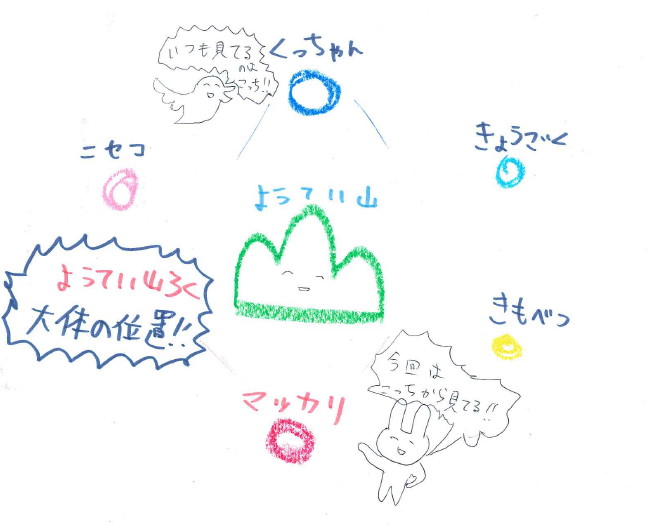 いつも見てる
のは
こっち!!
くっちゃん
きょうごく
ニセコ
ようてい山
ようてい山ろく
大体の位置!!
きもべつ
今回は
こっちから見てる!!
マッカリ